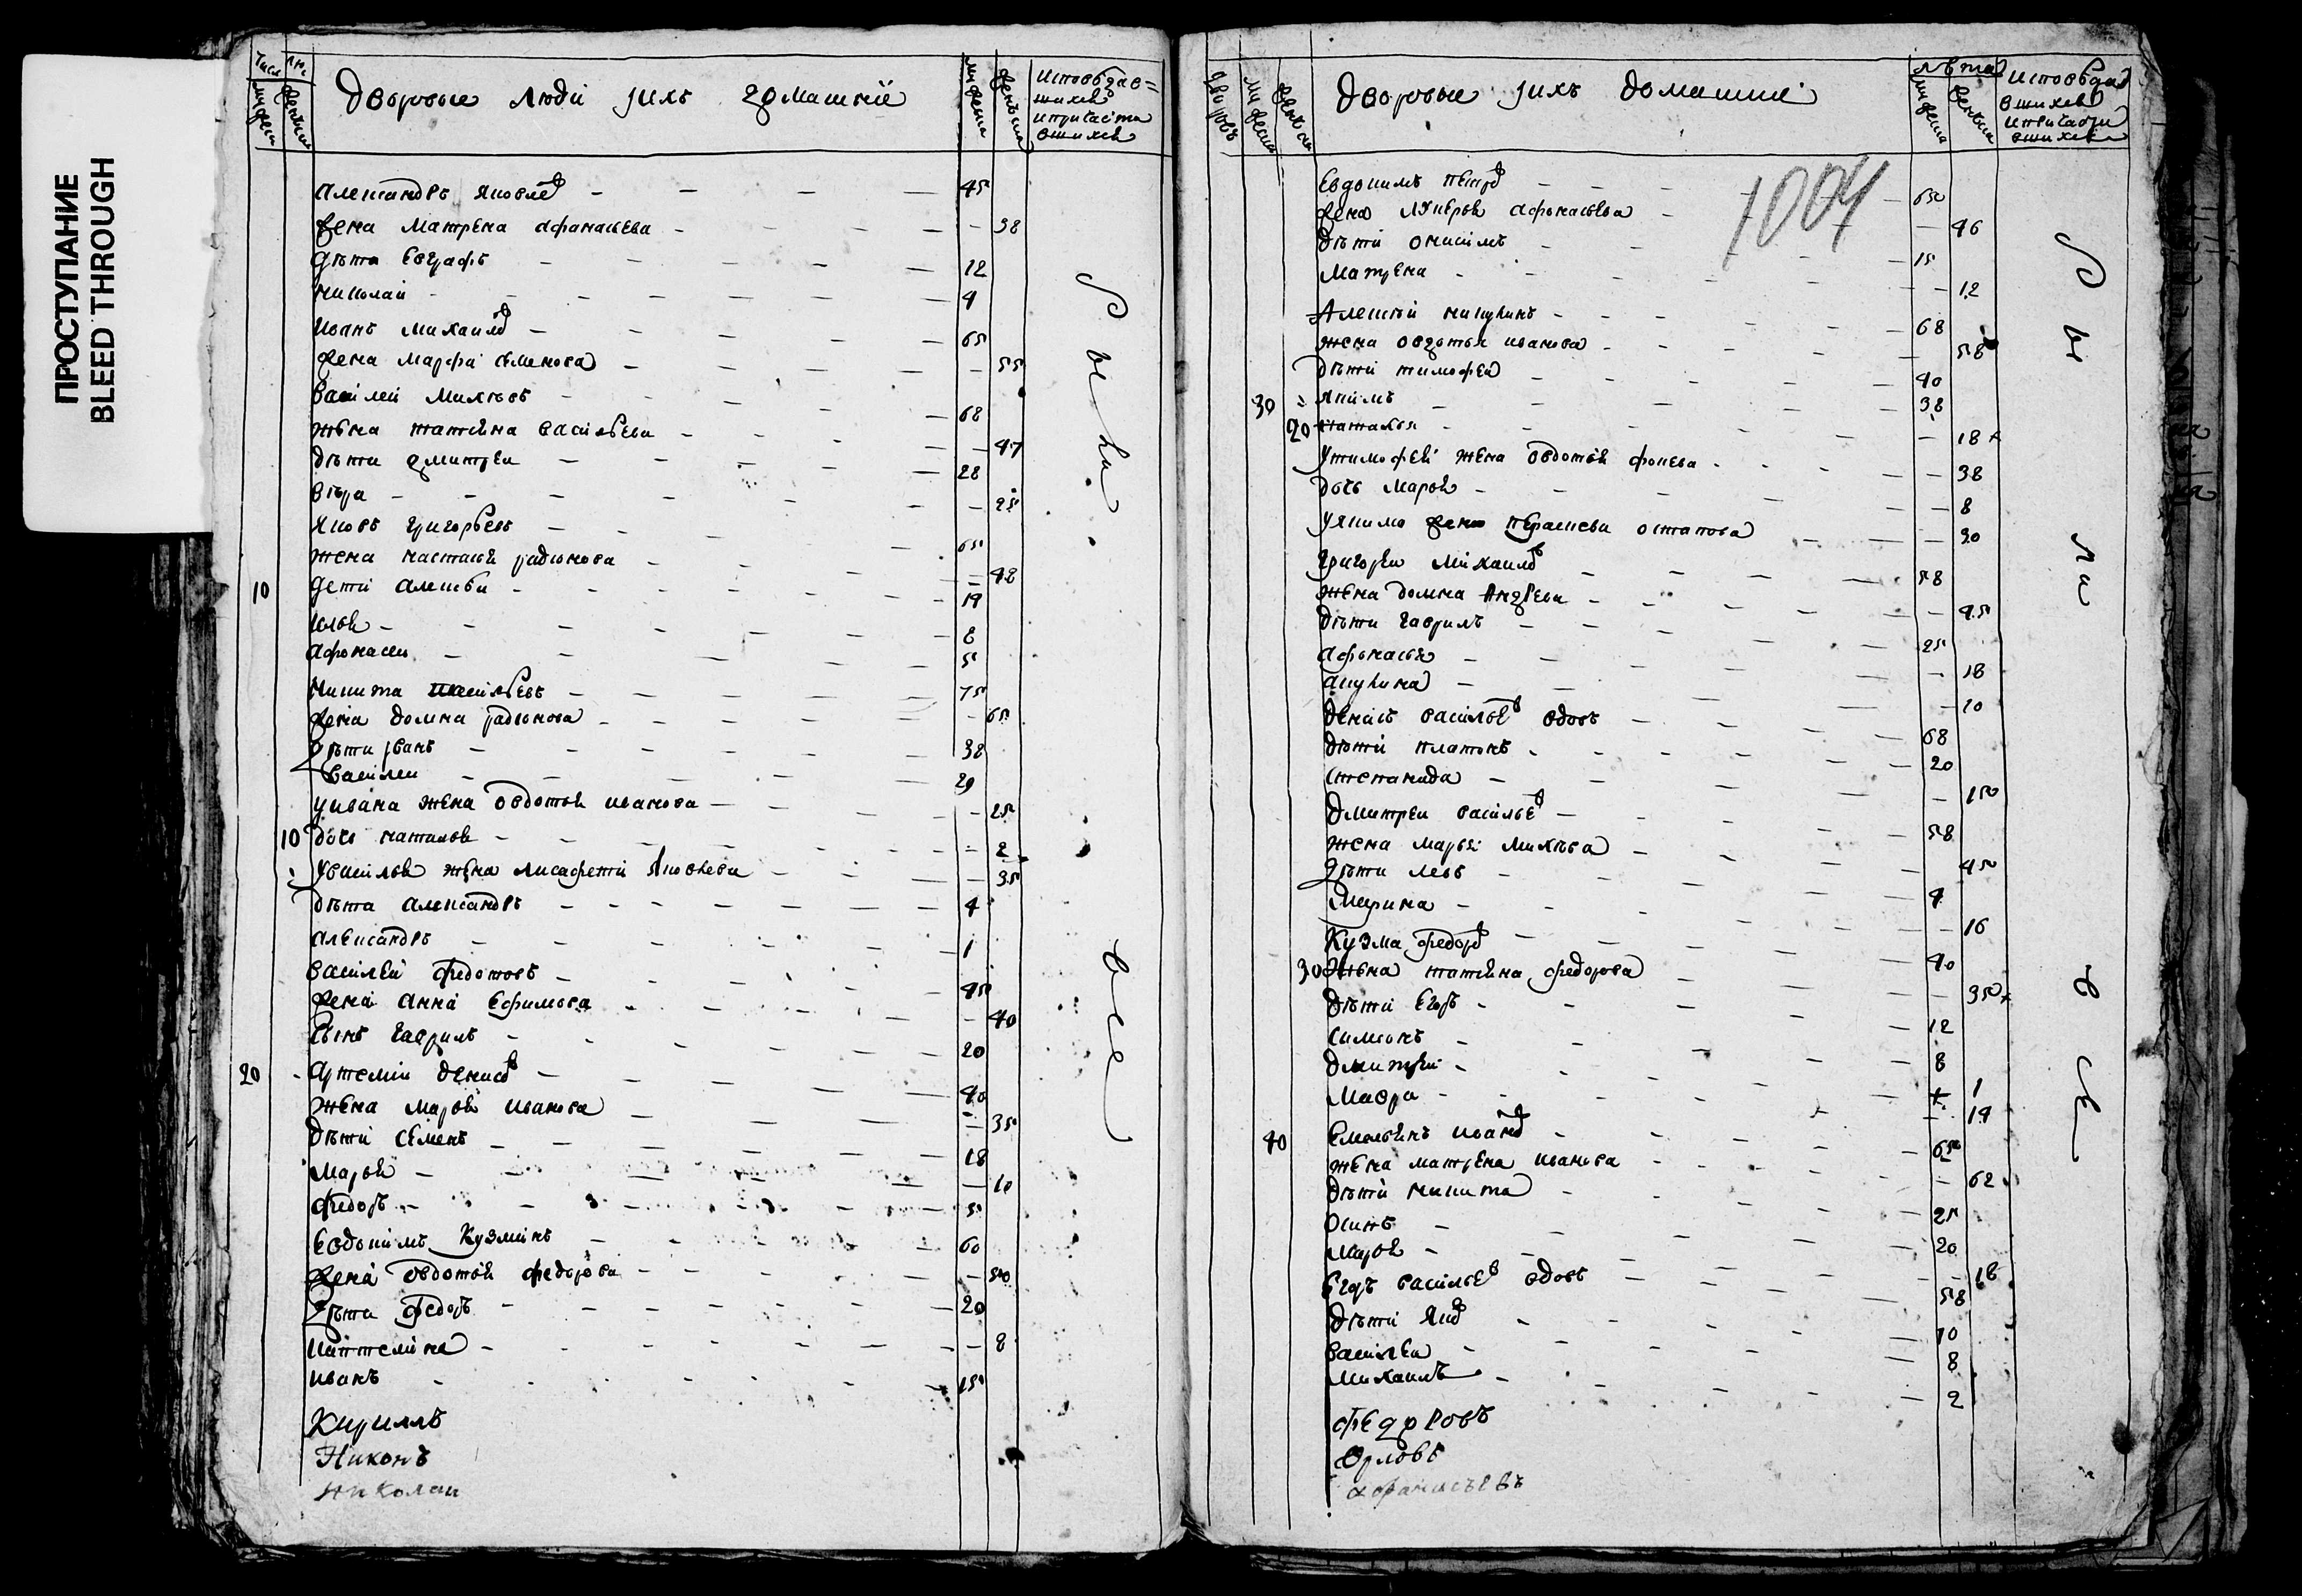 ПРОСТУПАНИЕ
BLEED THROUGH
Дворовые люди ихъ домашнїе
мужеска
женска
исповѣдав=
шихся
и причаста
вшихся
Александръ Яковлев 45
жена Матрена Афанасьева 38
дѣти Евграфъ 12
Николай 4
Иванъ Михаилов 65
жена Марфа Семенова 55
Василей Михѣевъ 68
жена татияна васильева 47
дѣти дмитреи 28
вѣра 25
Яковъ григорьевъ 65
жена настасья радионова 48
10 дети алексѣи 19
илья 8
афонасеи 5
Никита васильевъ 75
жена домна радионова 65
дѣти иванъ 38
василеи 29
у ивана жена овдотья иванова 25
10 дочь наталья 2
у василья жена лисафети Яковлева 35
дѣти александръ 4
александръ 1
василей федотовъ 45
жена анна Ефимова 40
сынъ гаврилъ 20
20 артемїи денисов 40
жена марья иванова 35
дѣти семенъ 18
марья 10
федоръ 5
Евдокимъ Кузминъ 60
жена овдотья федорова 50
дѣти федоръ 20
8
иванъ 15
Кириллъ
Никонъ
Николаи
Дворовые ихъ домашнї
дворовъ
мужеска
женска
лѣта
мужеска
женска
исповѣда
вшихся
и причасти
вшихся
1004
Евдокимъ петров 65
жена афонасьева 46
дѣти онисимъ 15
Матрена 12
Алексѣй никулинъ 68
жена овдотья иванова 58
дѣти тимофеи 40
30 Якимъ 38
20 наталья 18
у тимофея жена овдотья фокева 38
дочь марья 8
у якима жена остапова 30
григореи михаилов 58
жена домна Андреева 45
дѣти гаврилъ 25
афонасья 18
акулина 10
денисъ васильев вдовъ 68
дѣти платонъ 20
степанида 15
дмитреи васильев 58
жена марья михѣева 45
дѣти левъ 4
Марина 16
Кузма федоров 40
30 жена татияна федорова 35
дѣти Егоръ 12
симионъ 8
дмитреи 1
мавра 14
40 Емельянъ иванов 65
жена матрена иванова 62
дѣти никита 25
осипъ 20
марья 18
Егоръ васильев вдовъ 58
дѣти Яков 10
василеи 8
михаилъ 2
федоровъ
Орловъ
афанасьевъ